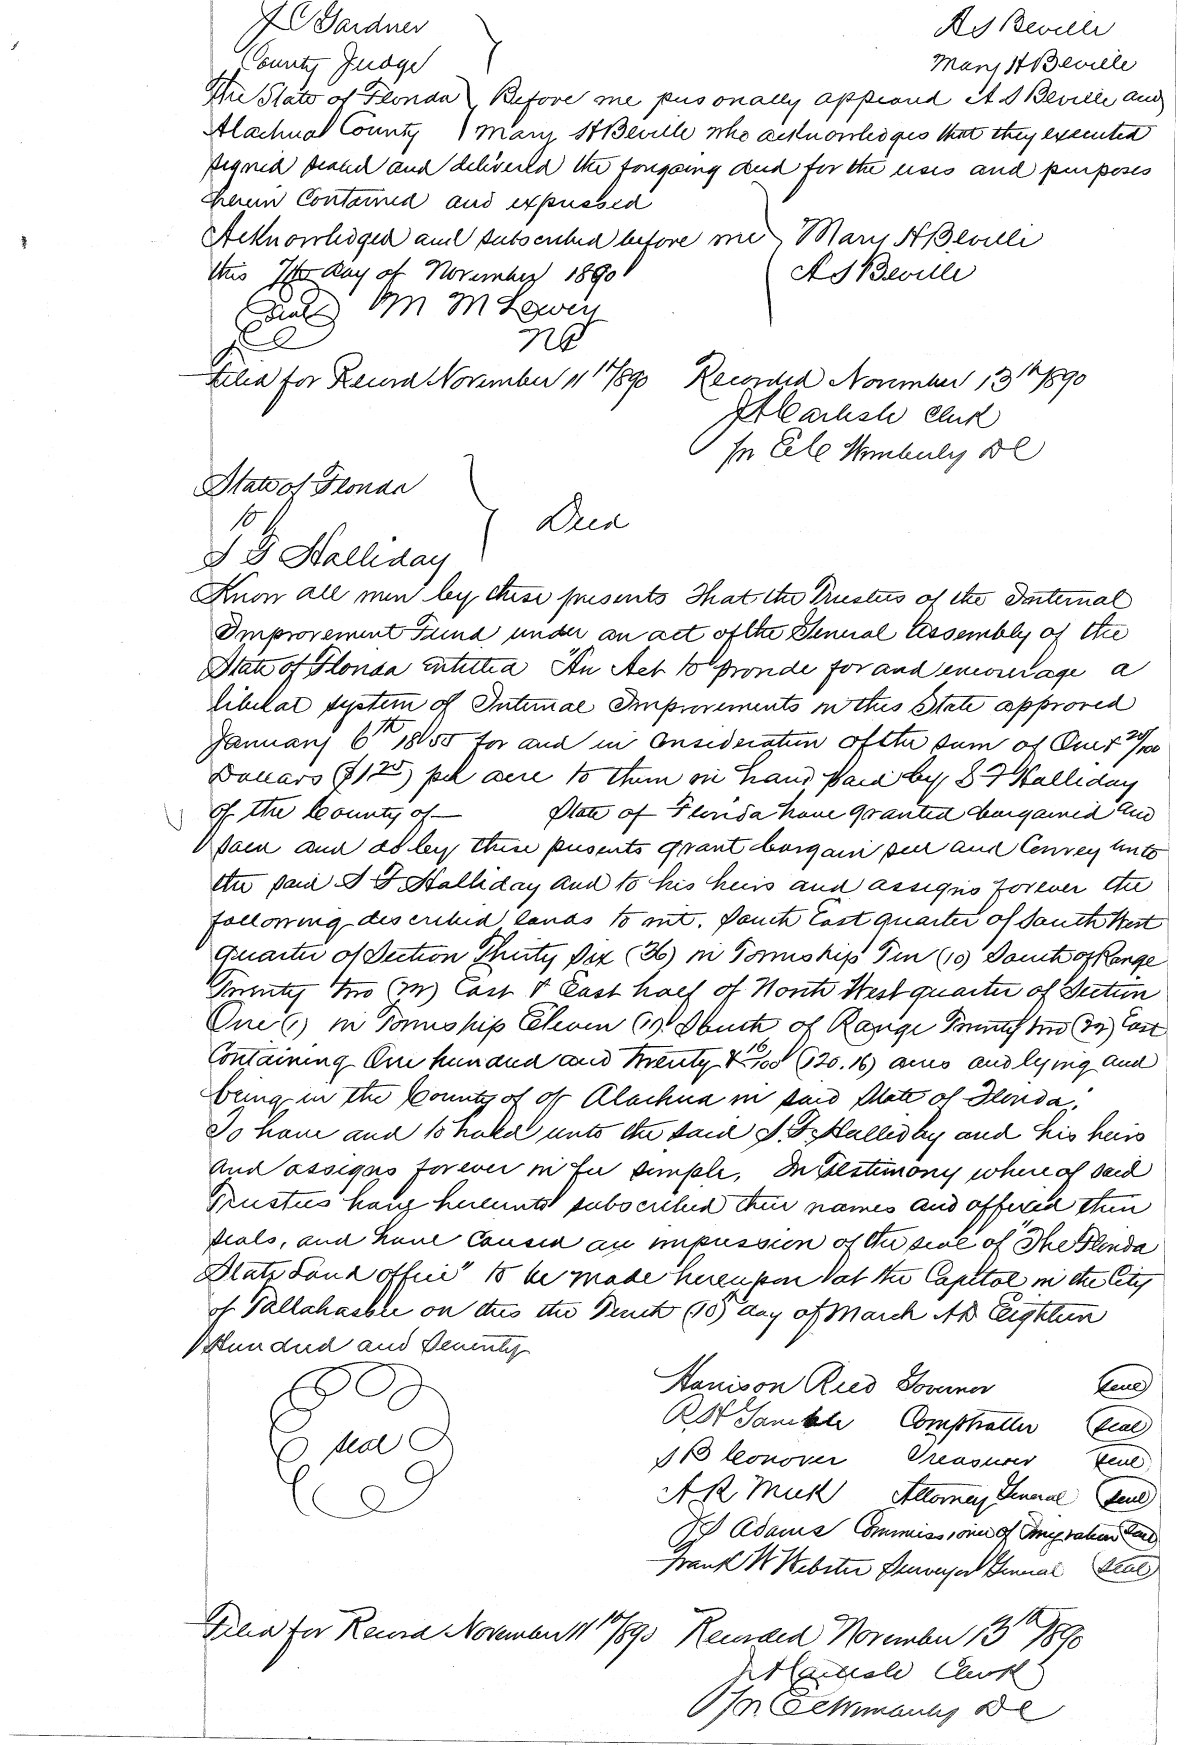 J C Gardner
A S Beville
County Judge
Mary H Beville
The State of Florida Before me personally appeared A S Beville and
Alachua County Mary H Beville who acknowledges that they executed
signed sealed and delivered the foregoing deed for the uses and purposes
herein contained and expressed
Acknowledged and subscribed before me Mary H Beville
this 7th day of November 1890 A S Beville
Seal M M Lewey
NP
Filed for Record November 11th/890 Recorded November 13th/890
J A Carlisle Clerk
pr E C Wimberly DC
State of Florida
to
Deed
S F Halliday
Know all men by these presents That the Trustees of the Internal
Improvement Fund under an act of the General Assembly of the
State of Florida entitled "An Act to provide for and encourage a
liberal system of Internal Improvements in this State approved
January 6th 1855 for and in consideration of the sum of One & 25/100
Dollars ($1 25) per acre to them in hand paid by S F Halliday
of the County of — State of Florida have granted bargained and
sold and do by these presents grant bargain sell and Convey unto
the said S F Halliday and to his heirs and assigns forever the
following described lands to wit. South East quarter of South West
quarter of Section Thirty Six (36) in Township Ten (10) South of Range
Twenty two (22) East & East half of North West quarter of Section
One (1) in Township Eleven (11) South of Range Twenty two (22) East
Containing One hundred and twenty & 16/100 (120.16) acres and lying and
being in the County of of Alachua in said State of Florida.
To have and to hold unto the said S. F. Halliday and his heirs
and assigns forever in fee simple. In Testimony where of said
Trustees have hereunto subscribed their names and affixed their
seals, and have caused an impression of the seal of "The Florida
State Land office" to be made hereupon at the Capitol in the City
of Tallahassee on this the Tenth (10) day of March AD Eighteen
Hundred and Seventy
Harrison Reed Governor seal
R H Gamble Comptroller seal
seal
S B Conover Treasurer seal
A R Meek Attorney General seal
J S Adams Commissioner of Imigration seal
Frank W Webster Surveyor General seal
Filed for Record November 11th/890 Recorded November 13th/890
J A Carlisle Clerk
pr E C Wimberly DC